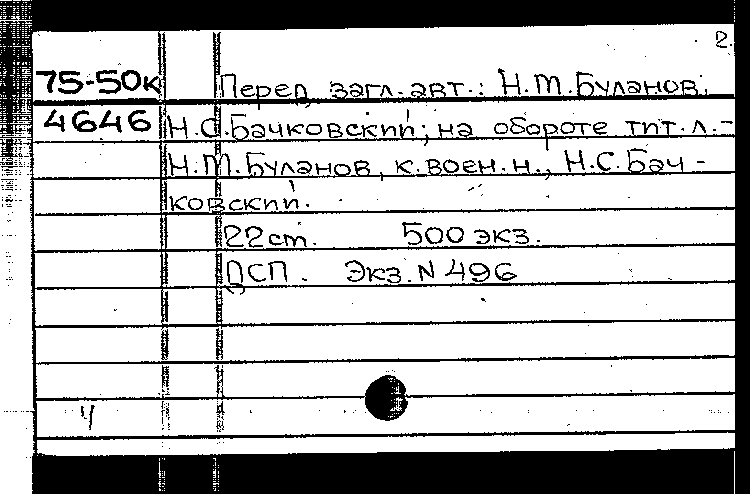 2.
75-50к Перед загл. авт.: Н.М.Буланов,
4646 Н.С.Бачковский; на обороте тит. л.-
Н.М.Буланов, к.воен.н., Н.С.Бач-
ковский.
22 см. 500 экз.
ДСП. Экз. N 496
4